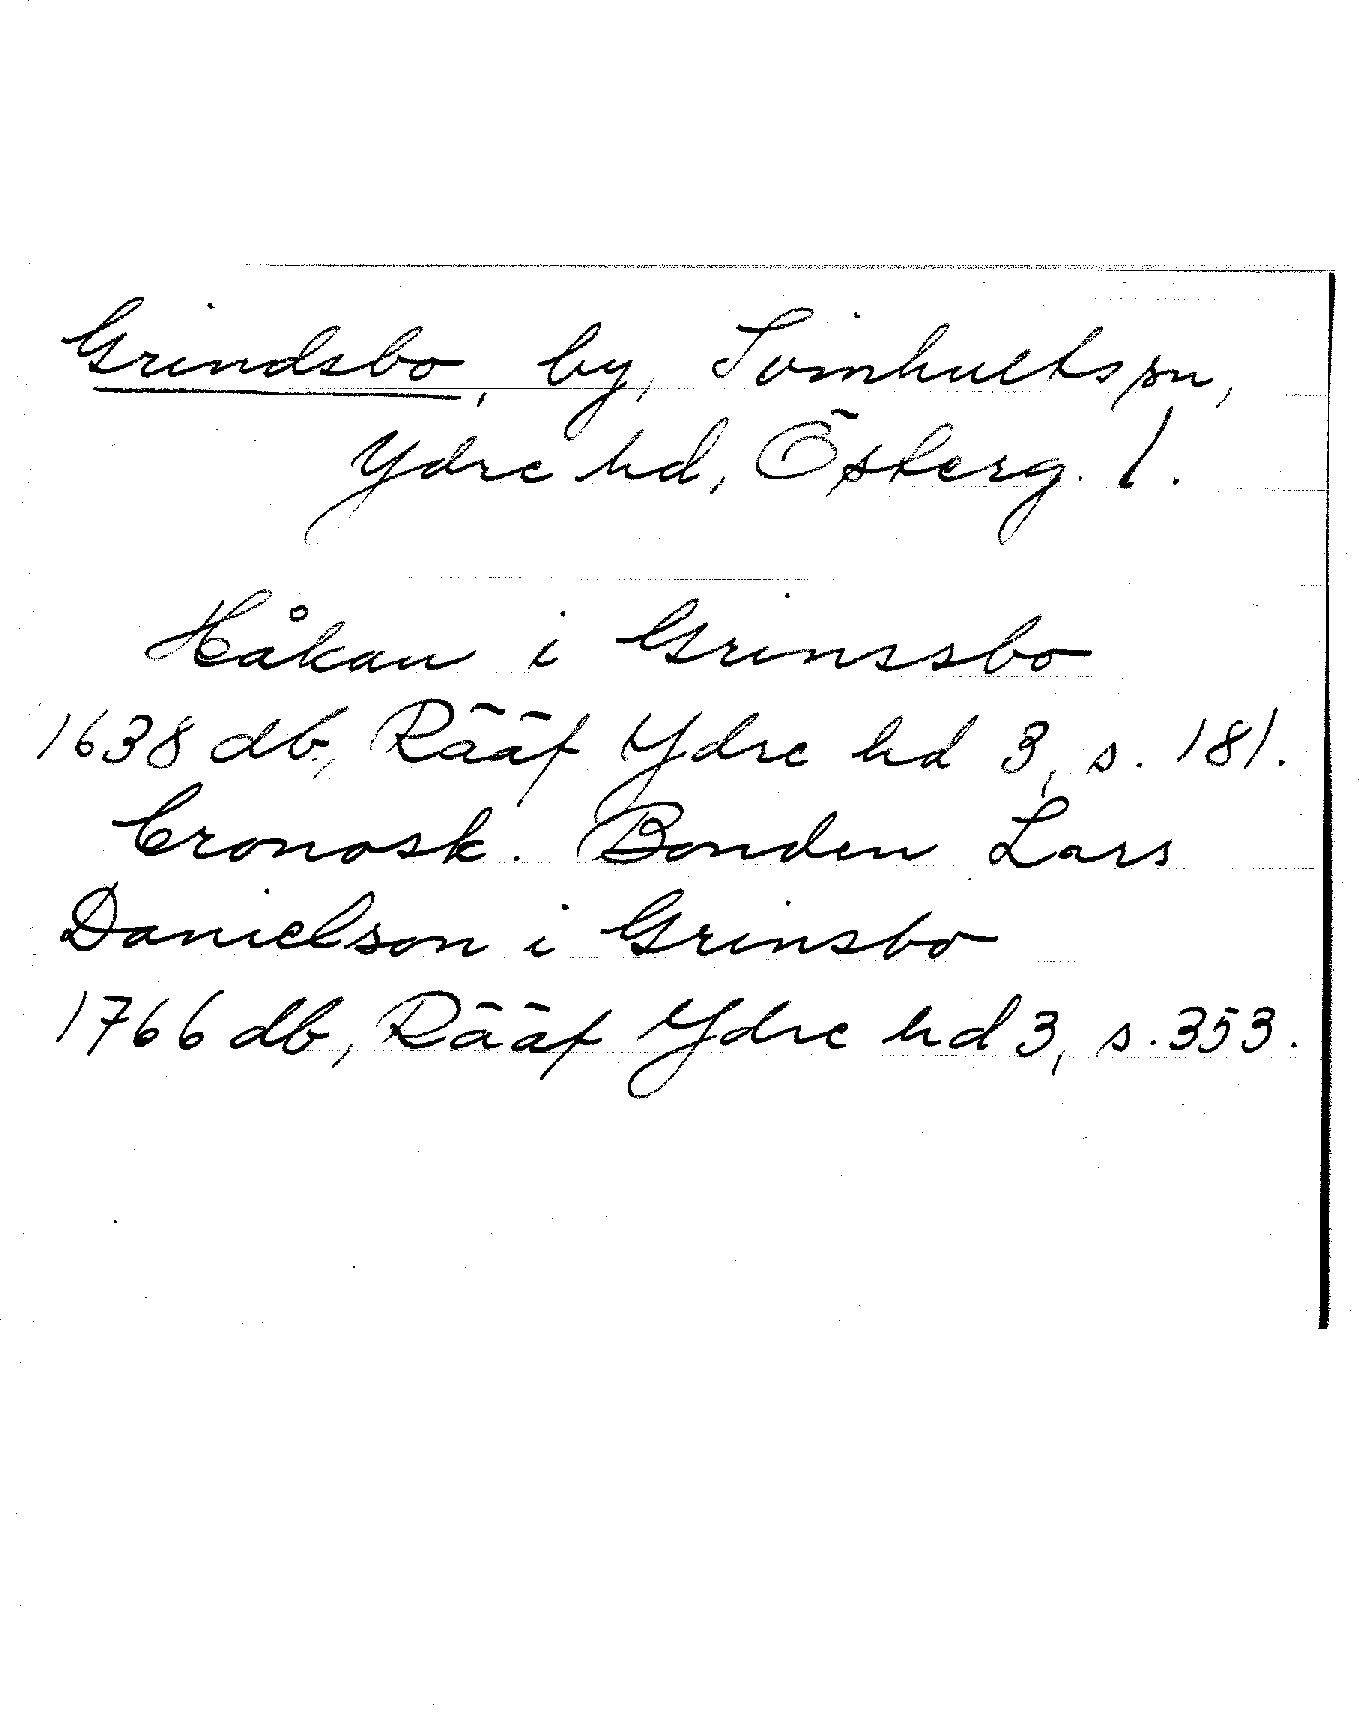 Grindsbo, by, Svinhults sn,
Ydre hd, Österg. l.
Håkan i Grinssbo
1638 db, Rääf Ydre hd 3, s. 181.
Cronosk. Bonden Lars
Danielson i Grinsbo
1766 db, Rääf Ydre hd 3, s. 353.